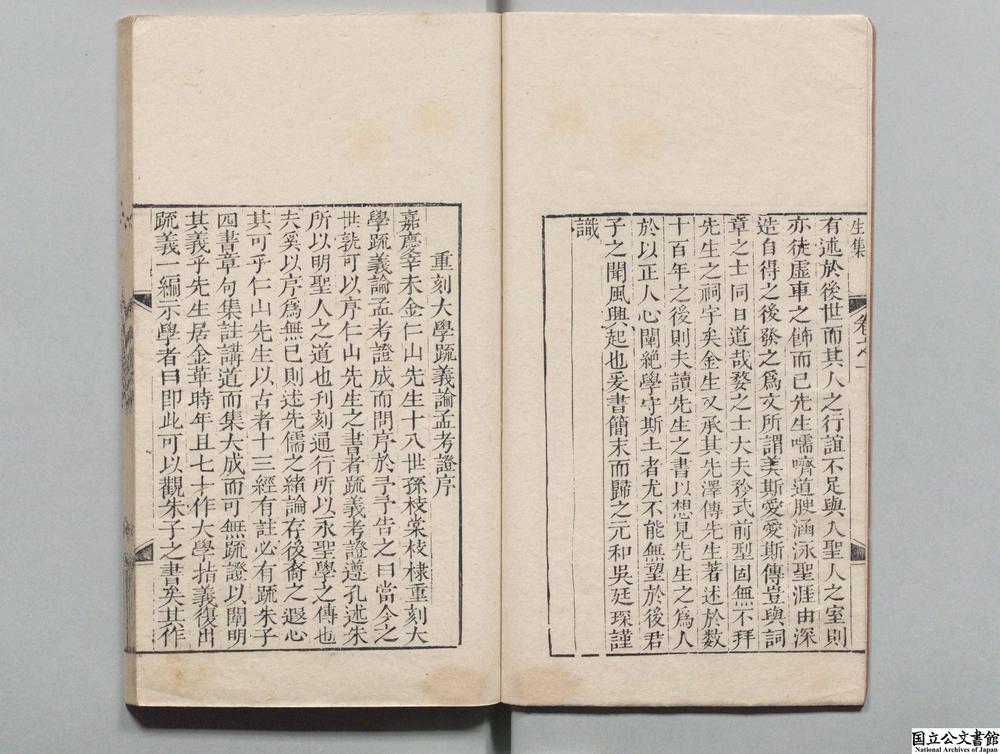 生集
卷之一
有述於後世而其人之行誼不足與入聖人之室則
亦徒虛車之飾而已先生嚅嚌道腴涵泳聖涯由深
造自得之後發之爲文所謂美斯愛愛斯傳豈與詞
章之士同日道哉婺之士大夫矜式前型固無不拜
先生之祠宇矣金生又承其先澤傳先生著述於數
十百年之後則夫讀先生之書以想見先生之爲人
於以正人心闡絕學守斯土者尤不能無望於後君
子之聞風興起也爰書簡末而歸之元和吳廷琛謹
識
重刻大學疏義論孟考證序
嘉慶辛未金仁山先生十八世孫枝棠枝棣重刻大
學疏義論孟考證成而問序於予予告之曰當今之
世孰可以序仁山先生之書者疏義考證遵孔述朱
所以明聖人之道也刊刻通行所以永聖學之傳也
夫奚以序爲無已則述先儒之緒論存後裔之遐心
其可乎仁山先生以古者十三經有註必有疏朱子
四書章句集註講道而集大成而可無疏證以闡明
其義乎先生居金華時年且七十作大學指義復出
疏義一編示學者曰即此可以觀朱子之書矣其作
国立公文書館
National Archives of Japan